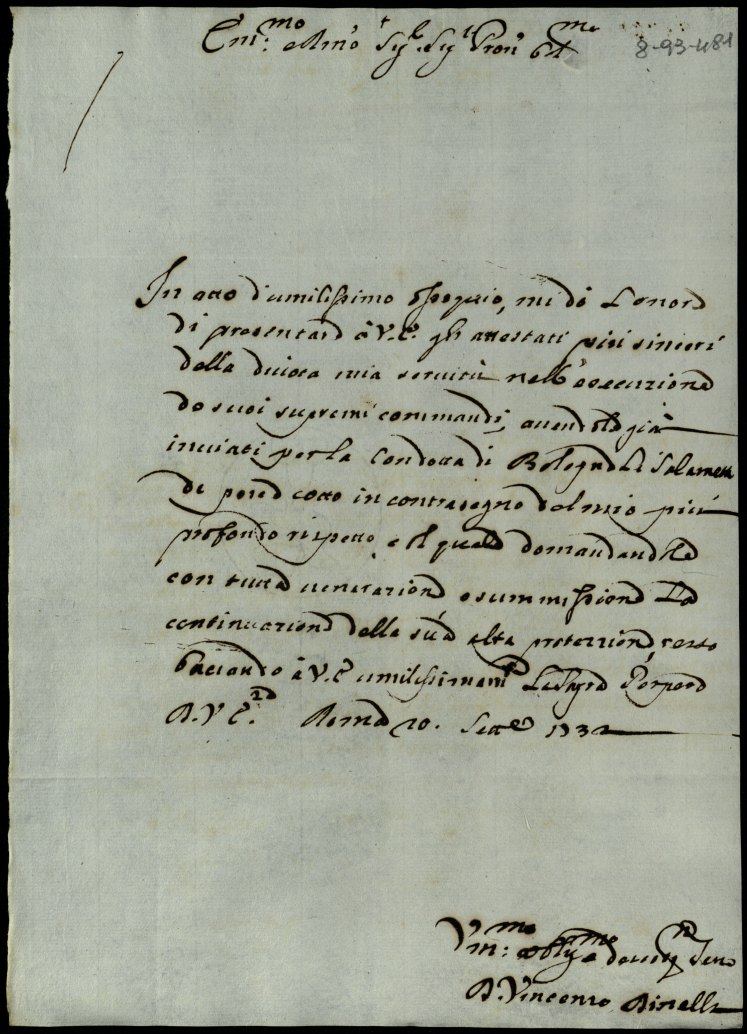 Em:mo e Rmo Sig.r Sig.r Pron
8-93-481
In atto d'umilissimo ossequio, mi dò l'onore
di presentare à V.E. gli attestati più sinceri
della divota mia servitù nell'esecuzione
de suoi supremi commandi, avendole già
inviati per la Condotta di Bologna li Salamera
di cotto in contrasegno del mio più
profondo rispetto, e domandandole
con tutta venerazione e summissione La
continuazione della sua alta protezzione, resto
baciando à V.E. umilissimam.te La Sagra Porpora
D. V. E.za Roma 20. Sett.e 1732
Um:mo obligmo Serv
D. Vincenzo